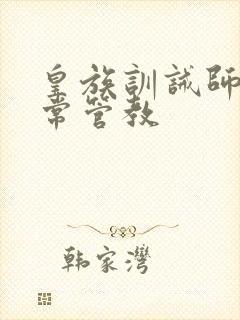 皇族訓誡師
常管教
韩家灣